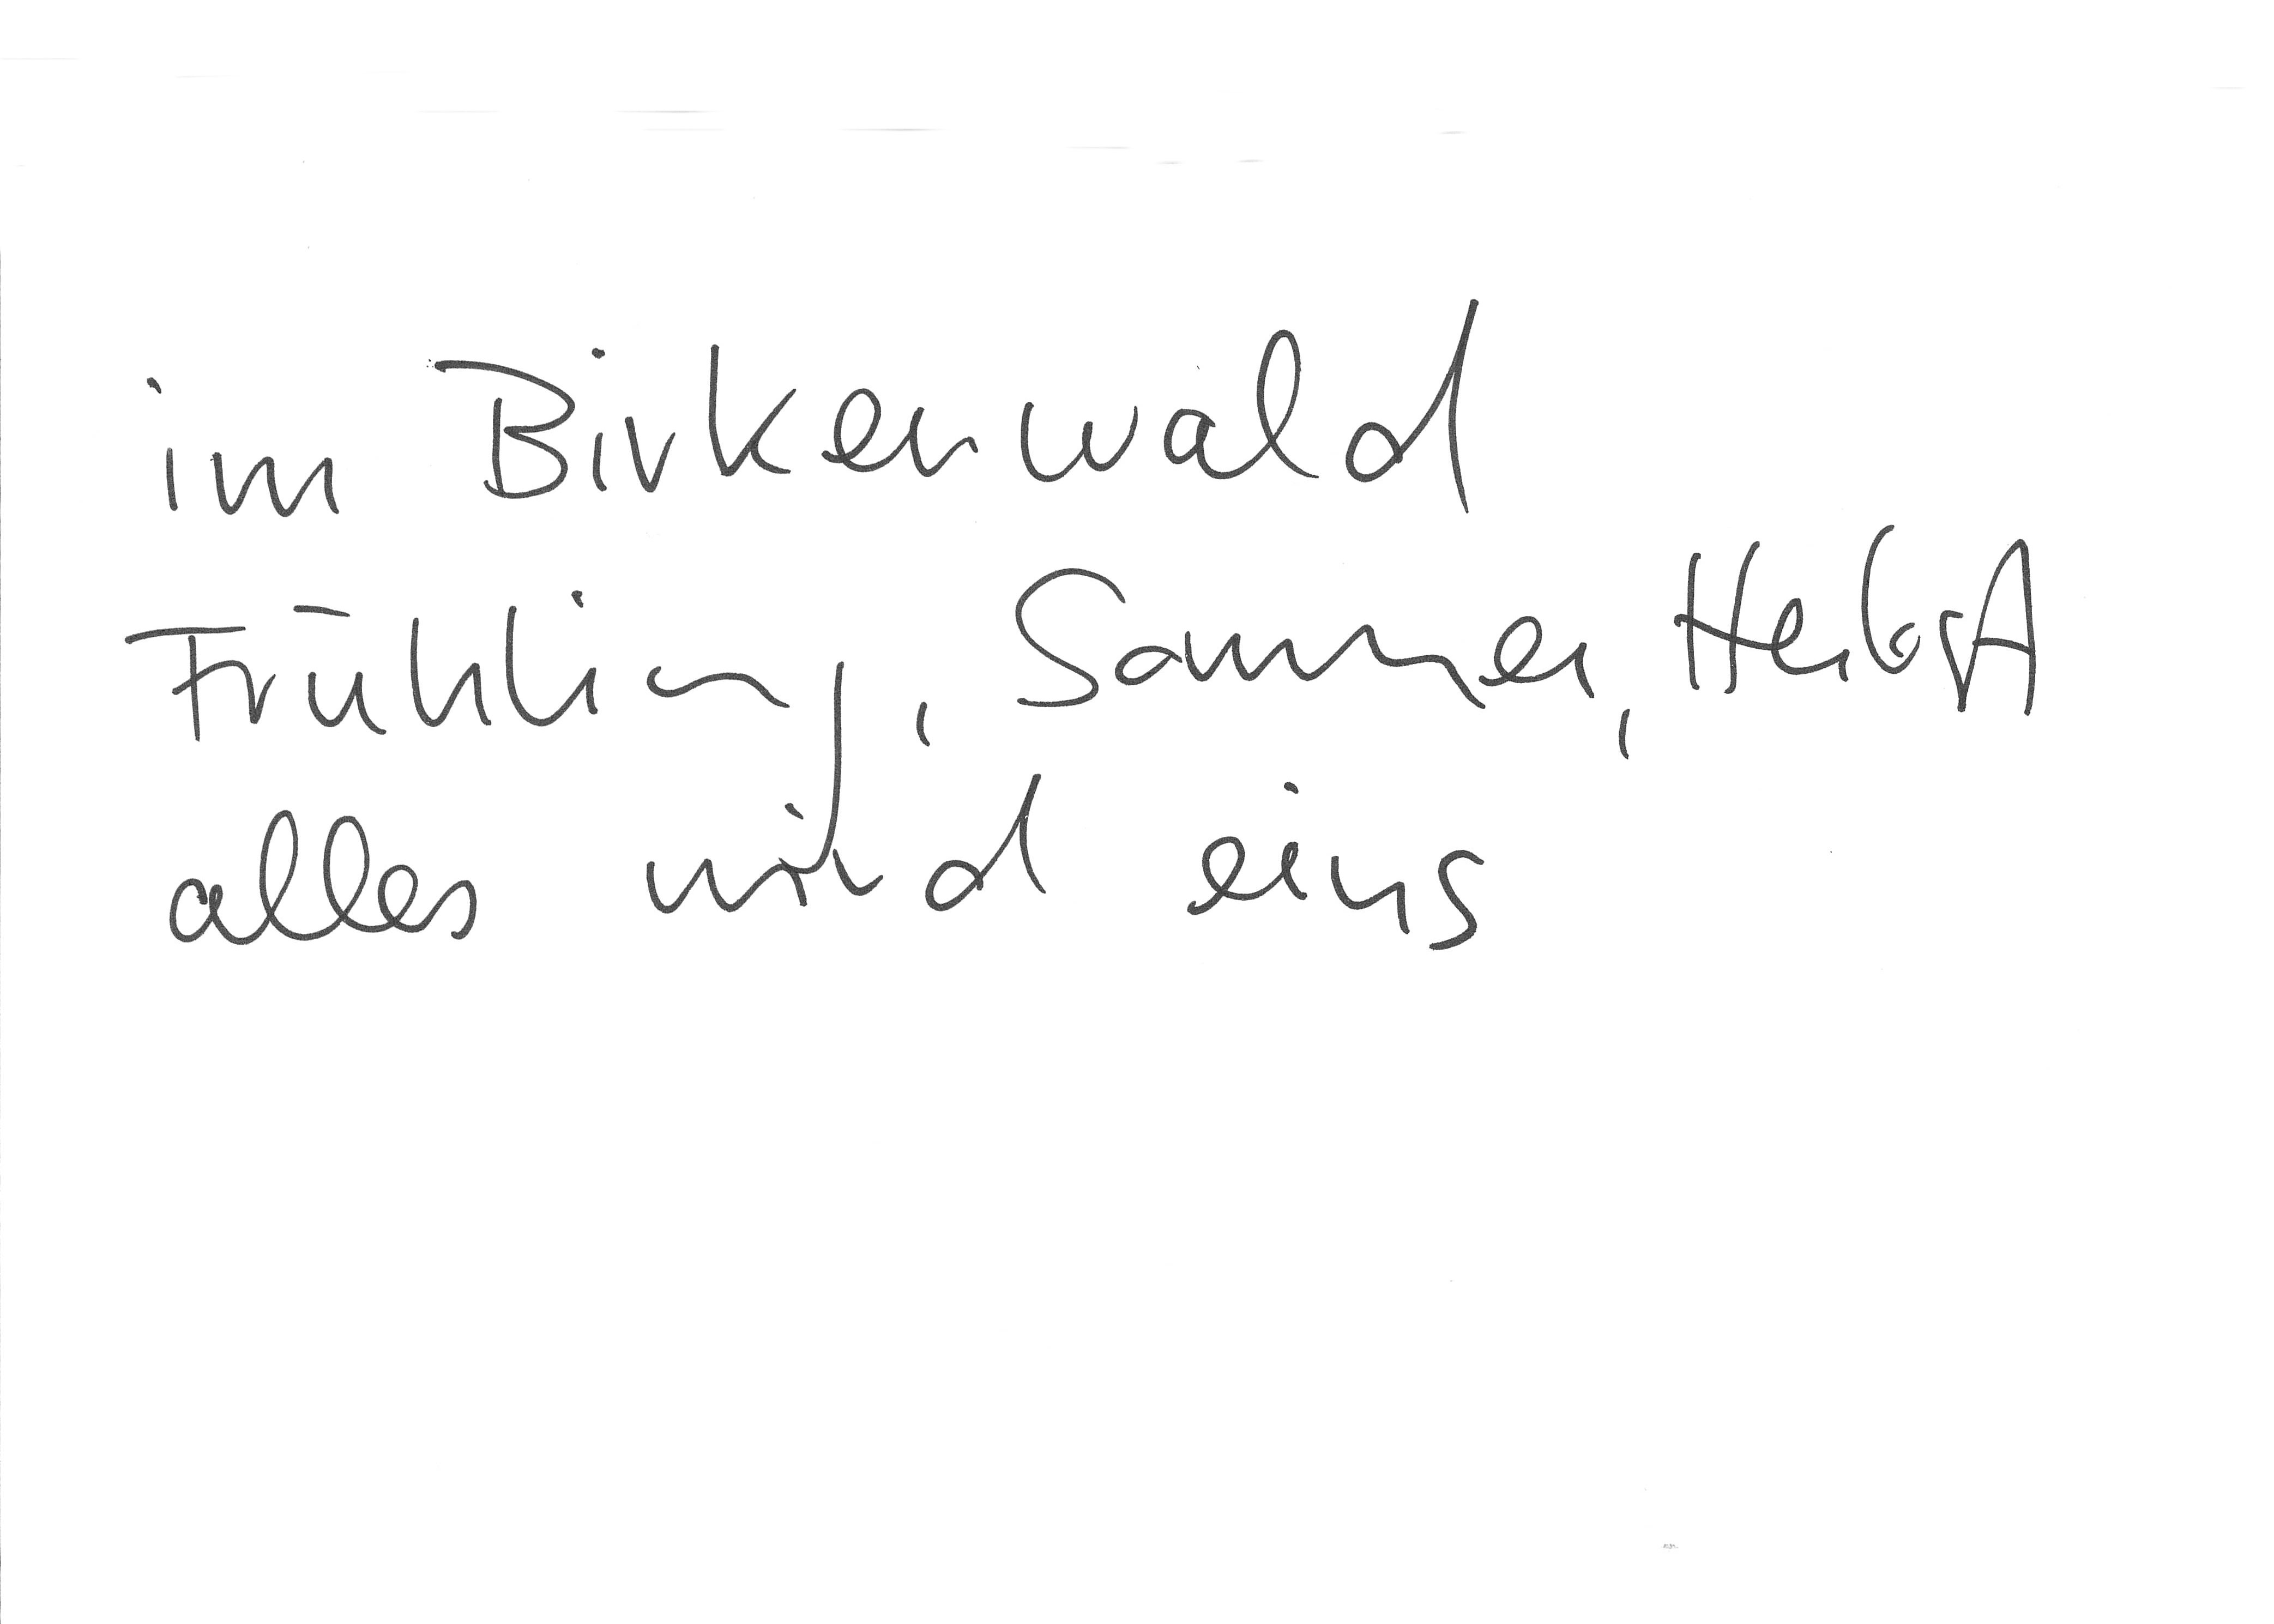 im Birkenwald
Frühling, Sommer, Herbst
alles wird eins